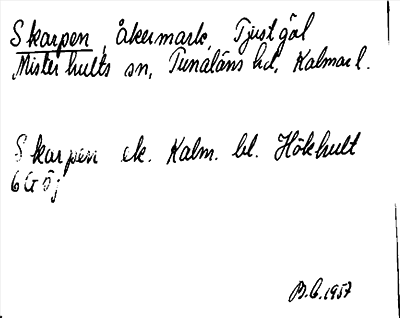 Skarpen, åkermark, Tjustgöl
Misterhults sn, Tunaläns hd, Kalmar l.
Skarpen ek. Kalm. bl. Hökhult
6G öj
B.G. 1957